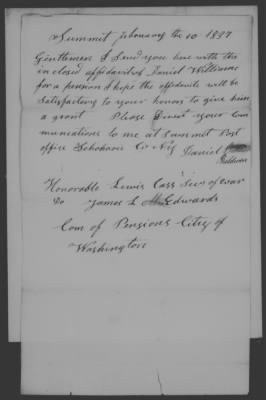 Summit February the 10 1837
Gentlemen I Send you here with the
in closed affidavids of Daniel Williams
for a pension I hope the affidavits will be
Satisfactory to your honors to give him
a grant Please Direct your Com
munications to me at Summit Post
office Schoharie Co N.Y Daniel
Honorable Lewis Cass Secy of War
To James L Edwards
Com of Pensions City of
Washington